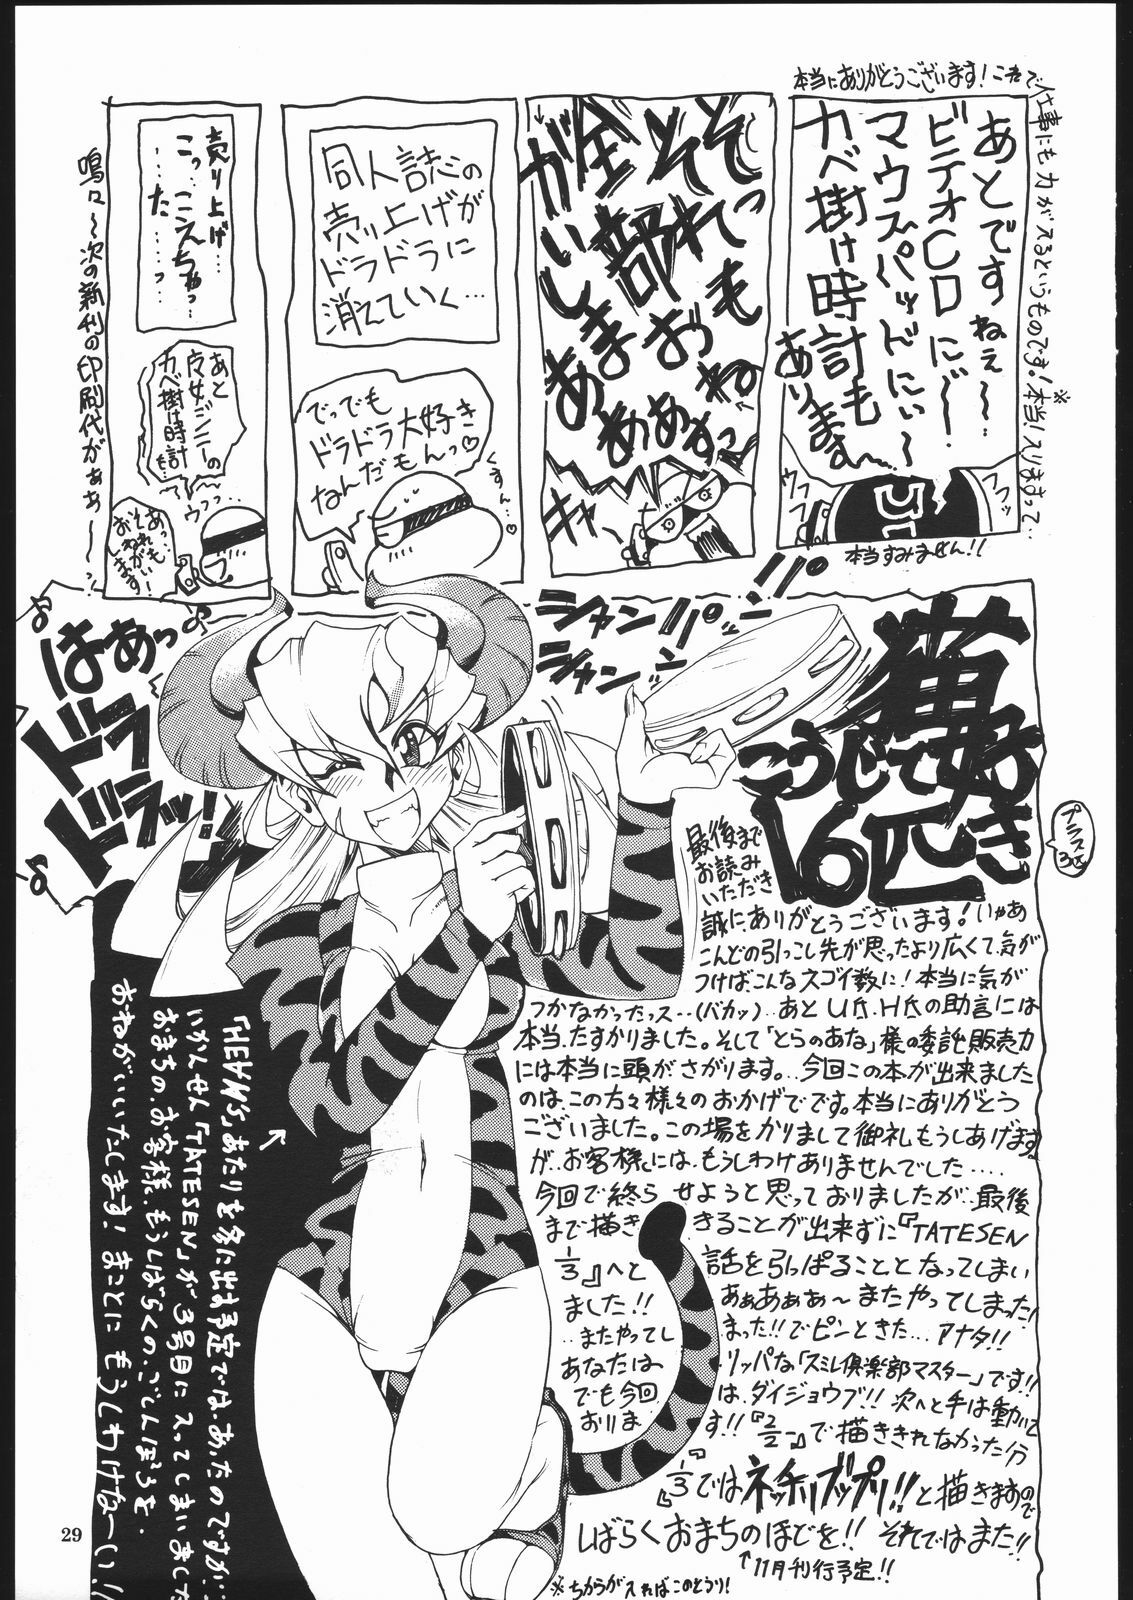 本当にありがとうございます！これで仕事にも力が入るというものです！※本当！入りまくって…
あとですねぇ〜
ビデオCDにぃ〜
マウスパッドにぃ〜
カベ掛け時計も
ありまぁす〜
ウフフ
フッフッ
本当すみません！！
そっそれもっ
とそれもおねがいしまぁぁすっ
全部
キャー
同人誌の
売り上げが
ドラドラに
消えていく…
でっでも
ドラドラ大好き
なんだもんっ♡
くすん…♡
売り上げ…
こっ…こえちゃっ…
……た……っ
あと
皮女ジニーの
カベ掛け時計も
ウフッ…
あっ…
それも
おねがい
します！
鳴々〜次の新刊の印刷代がぁぁ〜〜っ
はぁっ
ドラ
ドラッ！
シャンシャン
パンパン
猫好き
こうじて
16匹
プラス3匹
最後まで
お読み
いただき
誠にありがとうございます！いやぁ
こんどの引っこし先が思ったより広くて、気が
つけばこんなスゴイ数に！本当に気が
つかなかったっス…(バカッ)…あとU氏、H氏の助言には
本当、たすかりました。そして「とらのあな」様の委託販売力
には本当に頭がさがります。…今回この本が出来ました
のは、この方々様々のおかげでです。本当にありがとう
ございました。この場をかりまして御礼もうしあげます。
が、お客様には、もうしわけありませんでした….
今回で終らせようと思っておりましたが、最後
まで描ききることが出来ずに『TATESEN
1/3』へと話を引っぱることとなってしまい
ました！！ああああぁ〜またやってしまった！
…またやってしまった！！でピンときた…アナタ！！
あなたはリッパな「スミレ倶楽部マスター」です！！
でも今回は、ダイジョウブ！！次へと手は動いて
おります！！『2/2』で描ききれなかった分
『1/3』では ネッチリズップリ！！と描きますので
しばらくおまちのほどを！！それではまた！！
↑11月刊行予定！！
※ちからが入ればこのとうり！
「HEAVN'S」あたりを冬に出す予定では、あったのですが…
いかんせん「TATESEN」が3号目に入ってしまいました
おまちの、お客様、もうしばらくの、ごしんぼうを、
おねがいいたします！まことにもうしわけなーい！！
29